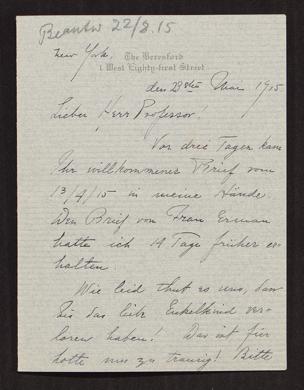 Beantw 22/8.15
New York.
The Beresford
1 West Eighty-first Street
den 28sten Mai 1915
Lieber Herr Professor!
Vor drei Tagen kam
Ihr willkommener Brief vom
13/4/15 in meine Hände.
Den Brief von Frau Erman
hatte ich 14 Tage früher er-
halten
Wie leid thut es uns, dass
Sie das liebe Enkelkind ver-
loren haben! Das ist für
uns zu traurig! Bitte